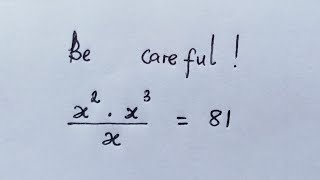 Be careful !
x² · x³
x
= 81